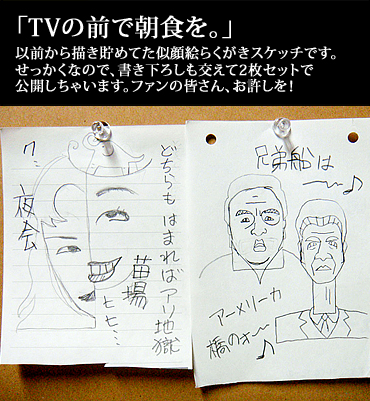 「TVの前で朝食を。」
以前から描き貯めてた似顔絵らくがきスケッチです。
せっかくなので、書き下ろしも交えて2枚セットで
公開しちゃいます。ファンの皆さん、お許しを!
どちらも はまれば アリ地獄
苗場
ヒヒ…
ク…
夜会
兄弟船は
〜〜♪
アーメリーカ
橋のォ〜
♪